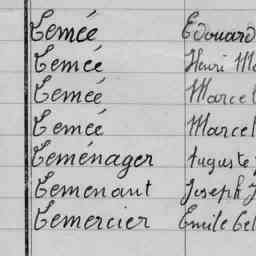 Lemée Edouard
Lemée Henri M
Lemée Marcel
Lemée Marcel
Leménager Auguste
Lemenant Joseph J
Lemercier Emile Cel